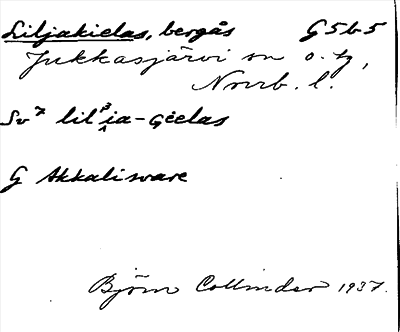 Liljakielas, bergås G5b5
Jukkasjärvi sn o. tg,
Norrb. l.
Sv 7 lil'ia-Gēelas
G Akkalisvare
Björn Collinder 1937.